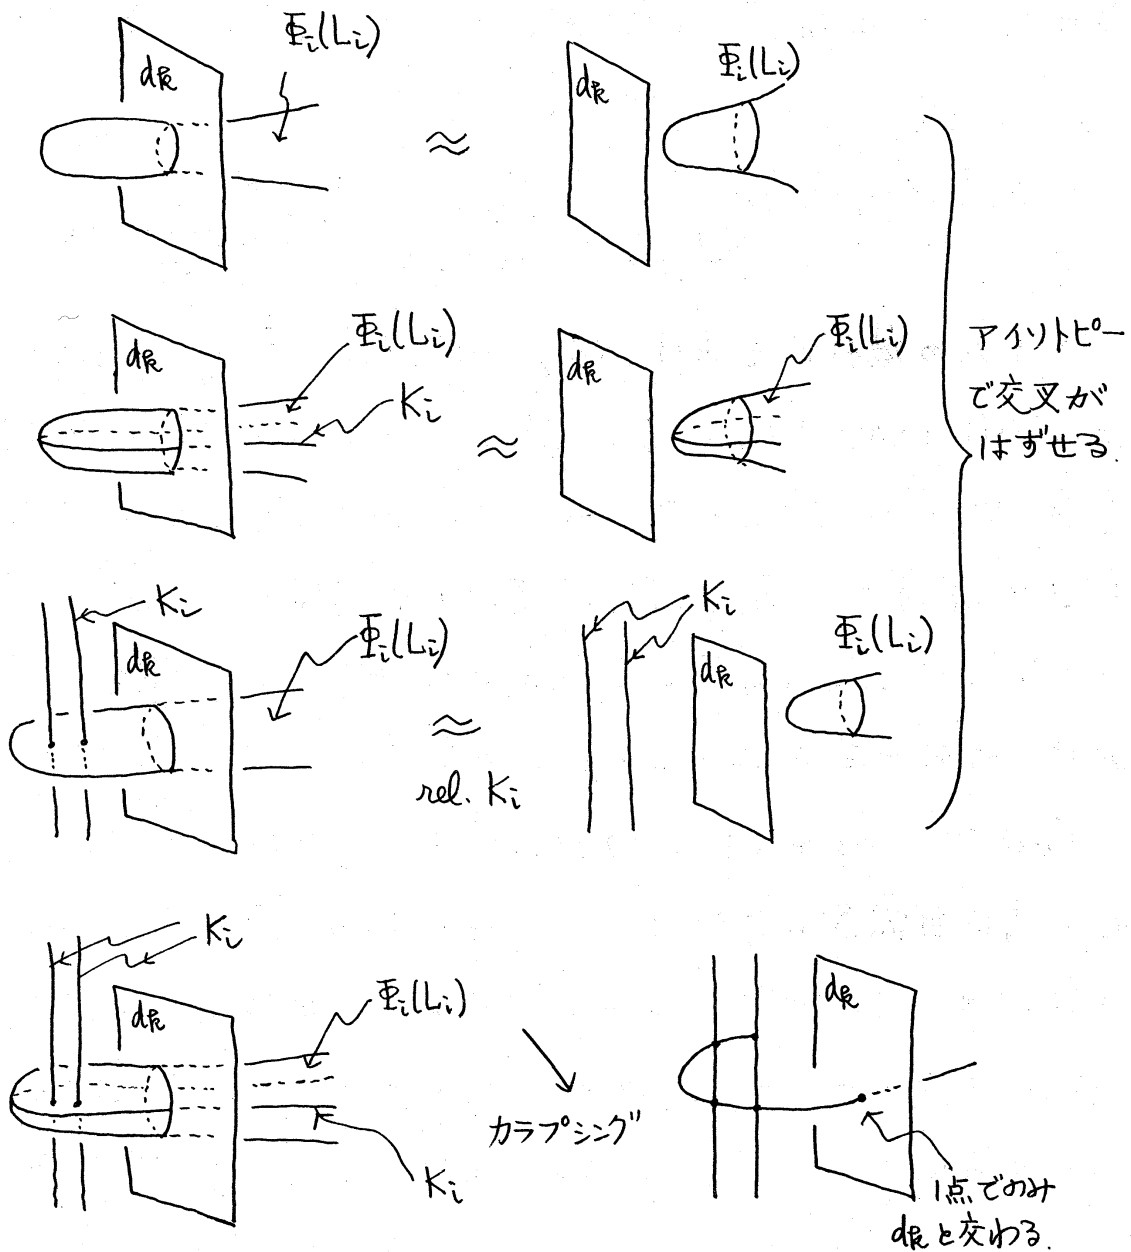 dk
Φi(Li)
≈
dk
Φi(Li)
dk
Φi(Li)
Ki
≈
dk
Φi(Li)
アイソトピー
で交叉が
はずせる.
Ki
dk
Φi(Li)
≈
rel. Ki
Ki
dk
Φi(Li)
Ki
dk
Φi(Li)
Ki
カラプシング
dk
1点でのみ
dkと交わる.